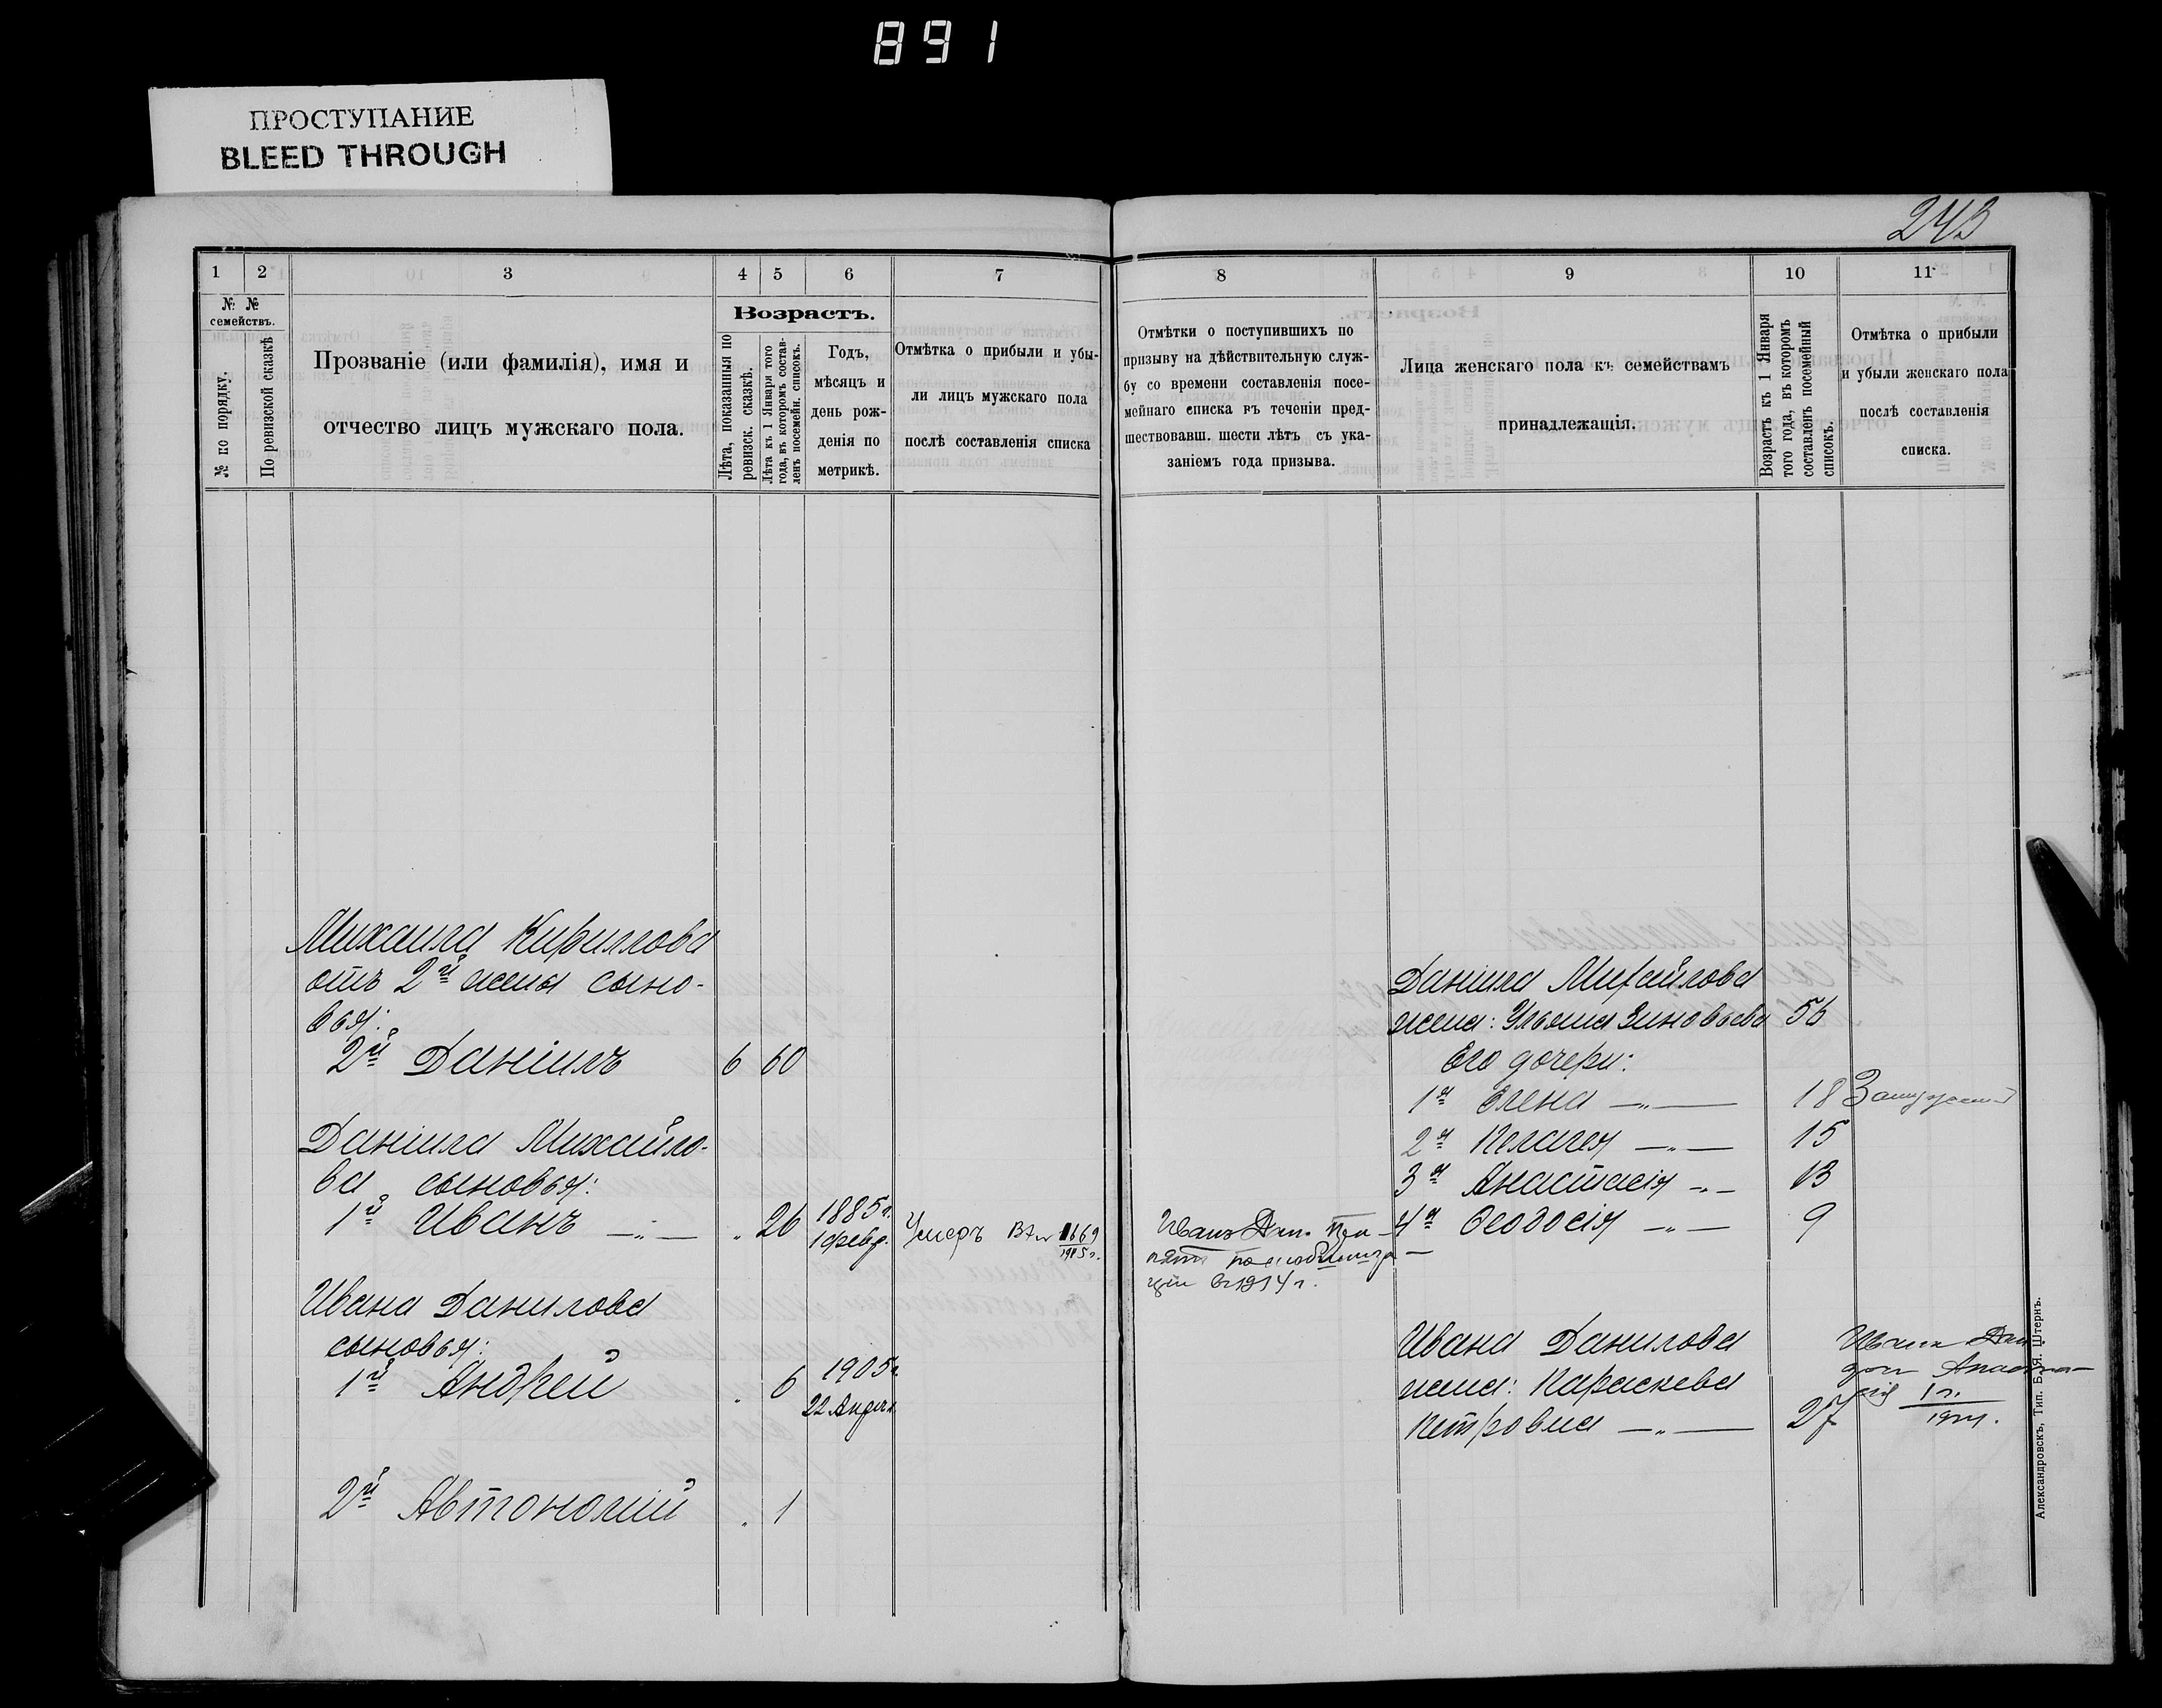 891
ПРОСТУПАНИЕ
BLEED THROUGH
243
1 2 3 4 5 6 7
№ № семействъ.
№ по порядку.
По ревизской сказкѣ
Прозваніе (или фамилія), имя и
отчество лицъ мужскаго пола.
Возрастъ.
Лѣта, показанныя по
ревизск. сказкѣ.
Лѣта къ 1 Января того
года, въ которомъ состав-
ленъ посемейн. списокъ.
Годъ,
мѣсяцъ и
день рож-
денія по
метрикѣ.
Отмѣтка о прибыли и убы-
ли лицъ мужскаго пола
послѣ составленія списка
Михаила Кириллова
отъ 2й жены сыно-
вья:
2й Даніилъ 6 60
Даніила Михайло-
ва сыновья:
1й Иванъ —„— „ 26 1885г.
1 февр.
Умеръ 1669
1915г.
Ивана Данилова
сыновья:
1й Андрей „ 6 1905г.
22
2й Автономій „ 1
8 9 10 11
Отмѣтки о поступившихъ по
призыву на дѣйствительную служ-
бу со времени составленія посе-
мейнаго списка въ теченіи пред-
шествовавш. шести лѣтъ съ ука-
заніемъ года призыва.
Лица женскаго пола къ семействамъ
принадлежащія.
Возрастъ къ 1 Января
того года, въ которомъ
составленъ посемейный
списокъ.
Отмѣтка о прибыли
и убыли женскаго пола
послѣ составленія
списка.
Даніила Михайлова
жена: Ульяна Зиновьева 56
Его дочери:
1я Елена —„— 18 Замужемъ
2я Пелагея —„— 15
3я Анастасія —„— 13
4я Ѳеодосія —„— 9
Иванъ Дан. При-
нятъ по мобилиза-
ціи въ 1914 г.
Ивана Данилова
жена: Параскева
Петровна —„— 27
Ивана Дан.
доч Анаста-
сія 1 г.
Александровскъ, Тип. Б. Я. Штернъ.